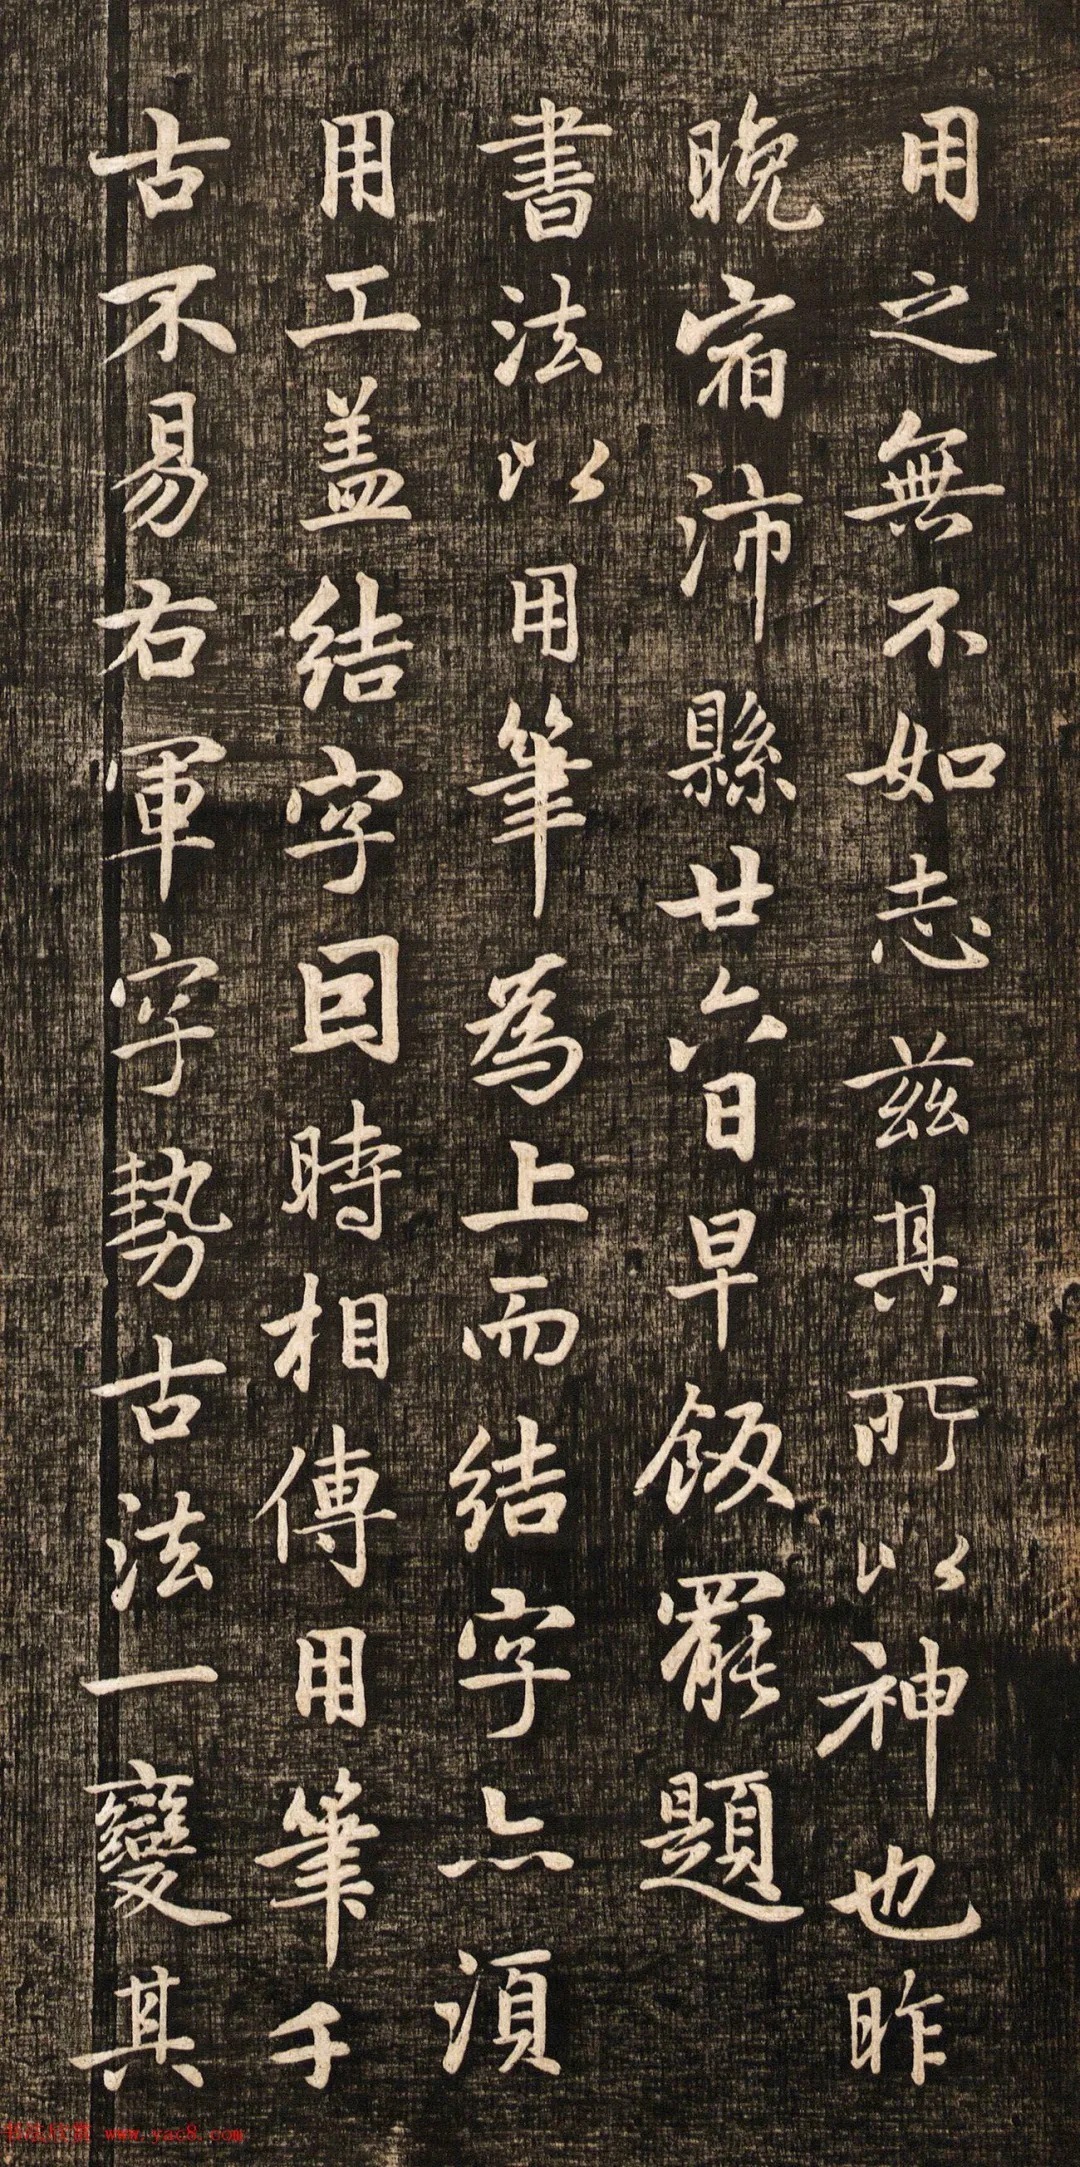 用之無不如志兹其所以神也昨
晚宿沛縣廿六日早飯罷題
書法以用筆為上而結字亦須
用工盖結字因時相傳用筆千
古不易右軍字勢古法一變其
www.yac8.com